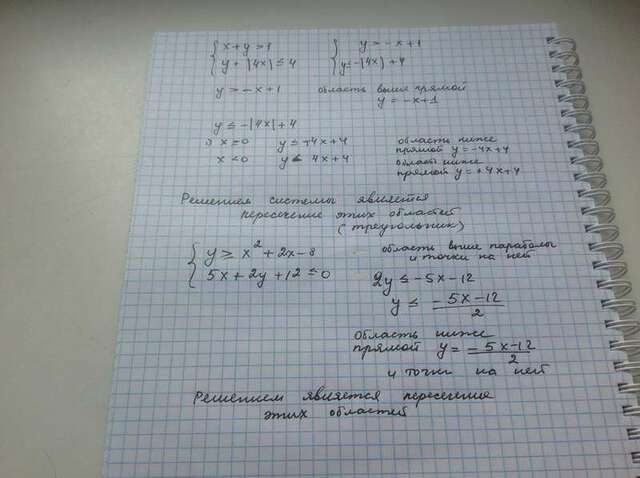 { x + y > 1    { y > -x + 1
{ y + |4x| ≤ 4    { y ≤ -|4x| + 4
y > -x + 1    область выше прямой
y = -x + 1
y ≤ -|4x| + 4
x ≥ 0    y ≤ -4x + 4    область ниже
прямой y = -4x + 4
x < 0    y ≤ 4x + 4    область ниже
прямой y = +4x + 4
Решением системы является
пересечение этих областей
(треугольник)
{ y ≥ x² + 2x - 8    область выше параболы
и точки на ней
{ 5x + 2y + 12 ≤ 0    2y ≤ -5x - 12
y ≤ (-5x - 12)/2
область ниже
прямой y = (-5x - 12)/2
и точки на ней
Решением является пересечение
этих областей